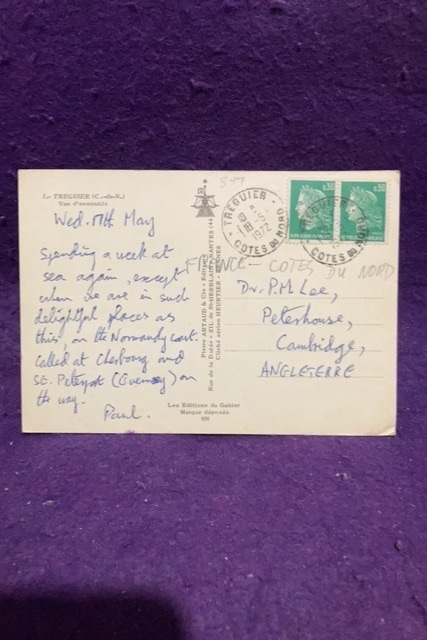 L. TREGUIER (C.-du-N.)
Vue d'ensemble
Wed. 17th May
Spending a week at
sea again, except
when we are in such
delightful places as
this, on the Normandy coast.
Called at Cherbourg and
St. Peterport (Guernsey) on
the way.
Paul.
Pierre ARTAUD & Cie - Editeurs
Rue de la Dutée - ZIL de St-HERBLAIN - NANTES (44
Cliché aérien HEURTIER - RENNES
Les Editions du Gabier
Marque déposée
TREGUIER
18-5
1972
COTES DU NORD
TREGUIER
COTES DU NORD
0,30
0,30
FRANCE - COTES DU NORD
Dr. P.M. Lee,
Peterhouse,
Cambridge,
ANGLETERRE